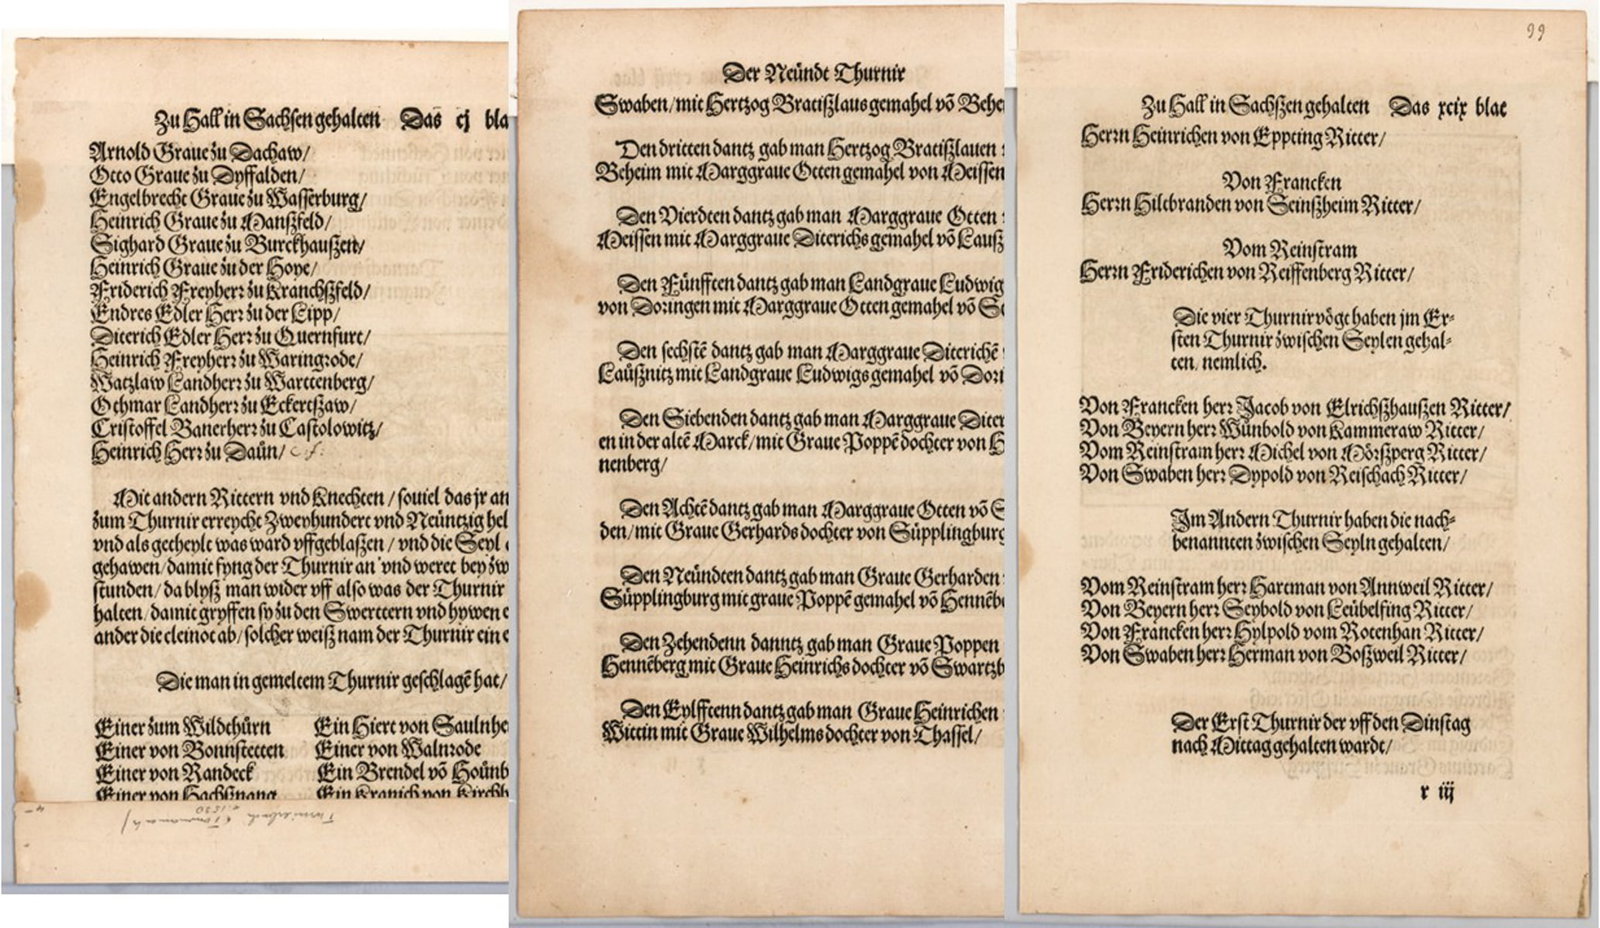 Zu Hall in Sachsen gehalten Das cj bla
Arnold Graue zu Dachaw/
Otto Graue zu Dyffalden/
Engelbrecht Graue zu Wasserburg/
Heinrich Graue zu Manßfeld/
Sighard Graue zu Burckhaußen/
Heinrich Graue zu der Hoye/
Friderich Freyherr zu Kranchßfeld/
Endres Edler Herr zu der Lipp/
Diterich Edler Herr zu Quernfurt/
Heinrich Freyherr zu Waringrode/
Watzlaw Landherr zu Warttenberg/
Othmar Landherr zu Eckertßaw/
Cristoffel Banerherr zu Castolowitz/
Heinrich Herr zu Daün/
Mit andern Rittern vnd Knechten / souiel das jr an
zum Thurnir erreycht Zweyhundert vnd Neüntzig hel
vnd als getheylt was ward vffgeblaßen / vnd die Seyl
gehawen / damit fyng der Thurnir an vnd weret bey zw
stunden / da blyß man wider vff also was der Thurnir
halten / damit gryffen sy zu den Swerttern vnd hywen e
ander die cleinot ab / solcher weiß nam der Thurnir ein e
Die man in gemeltem Thurnir geschlagē hat/
Einer zum Wildthürn Ein Hiert von Saulnhe
Einer von Bonnstetten Einer von Walnrode
Einer von Randeck Ein Brendel vō Hoünb
Einer von Hachßnang Ein Kranich von Kirchb
Der Neündt Thurnir
Swaben / mit Hertzog Bratißlaus gemahel vō Behe
Den dritten dantz gab man Hertzog Bratißlauen
Beheim mit Marggraue Otten gemahel von Meissen
Den Vierdten dantz gab man Marggraue Otten
Meissen mit Marggraue Diterichs gemahel vō Lauß
Den Fünfften dantz gab man Landgraue Ludwig
von Doringen mit Marggraue Otten gemahel vō S
Den sechstē dantz gab man Marggraue Diterichē
Laüßnitz mit Landgraue Ludwigs gemahel vō Dori
Den Siebenden dantz gab man Marggraue Diter
en in der altē Marck / mit Graue Poppē dochter von H
nenberg/
Den Achtē dantz gab man Marggraue Otten vō S
den / mit Graue Gerhards dochter von Süpplingburg
Den Neündten dantz gab man Graue Gerharden
Süpplingburg mit graue Poppē gemahel vō Hennēb
Den Zehendenn danntz gab man Graue Poppen
Hennēberg mit Graue Heinrichs dochter vō Swartzb
Den Eylfftenn dantz gab man Graue Heinrichen
Wittin mit Graue Wilhelms dochter von Thassel/
99
Zu Hall in Sachßen gehalten Das xcix blat
Herrn Heinrichen von Eppting Ritter/
Von Francken
Herrn Hiltbranden von Seinßheim Ritter/
Vom Reinstram
Herrn Friderichen von Reiffenberg Ritter/
Die vier Thurnirvögt haben jm Er-
sten Thurnir zwischen Seylen gehal-
ten / nemlich.
Von Francken herr Jacob von Elrichßhaußen Ritter/
Von Beyern herr Wünbold von Kammeraw Ritter/
Vom Reinstram herr Michel von Mörßperg Ritter/
Von Swaben herr Dypold von Reischach Ritter/
Im Andern Thurnir haben die nach-
benannten zwischen Seyln gehalten/
Vom Reinstram herr Hartman von Annweil Ritter/
Von Beyern herr Seybold von Leübelfing Ritter/
Von Francken herr Hylpold vom Rotenhan Ritter/
Von Swaben herr Herman von Boßweil Ritter/
Der Erst Thurnir der vff den Dinstag
nach Mittag gehalten wardt/
r iij